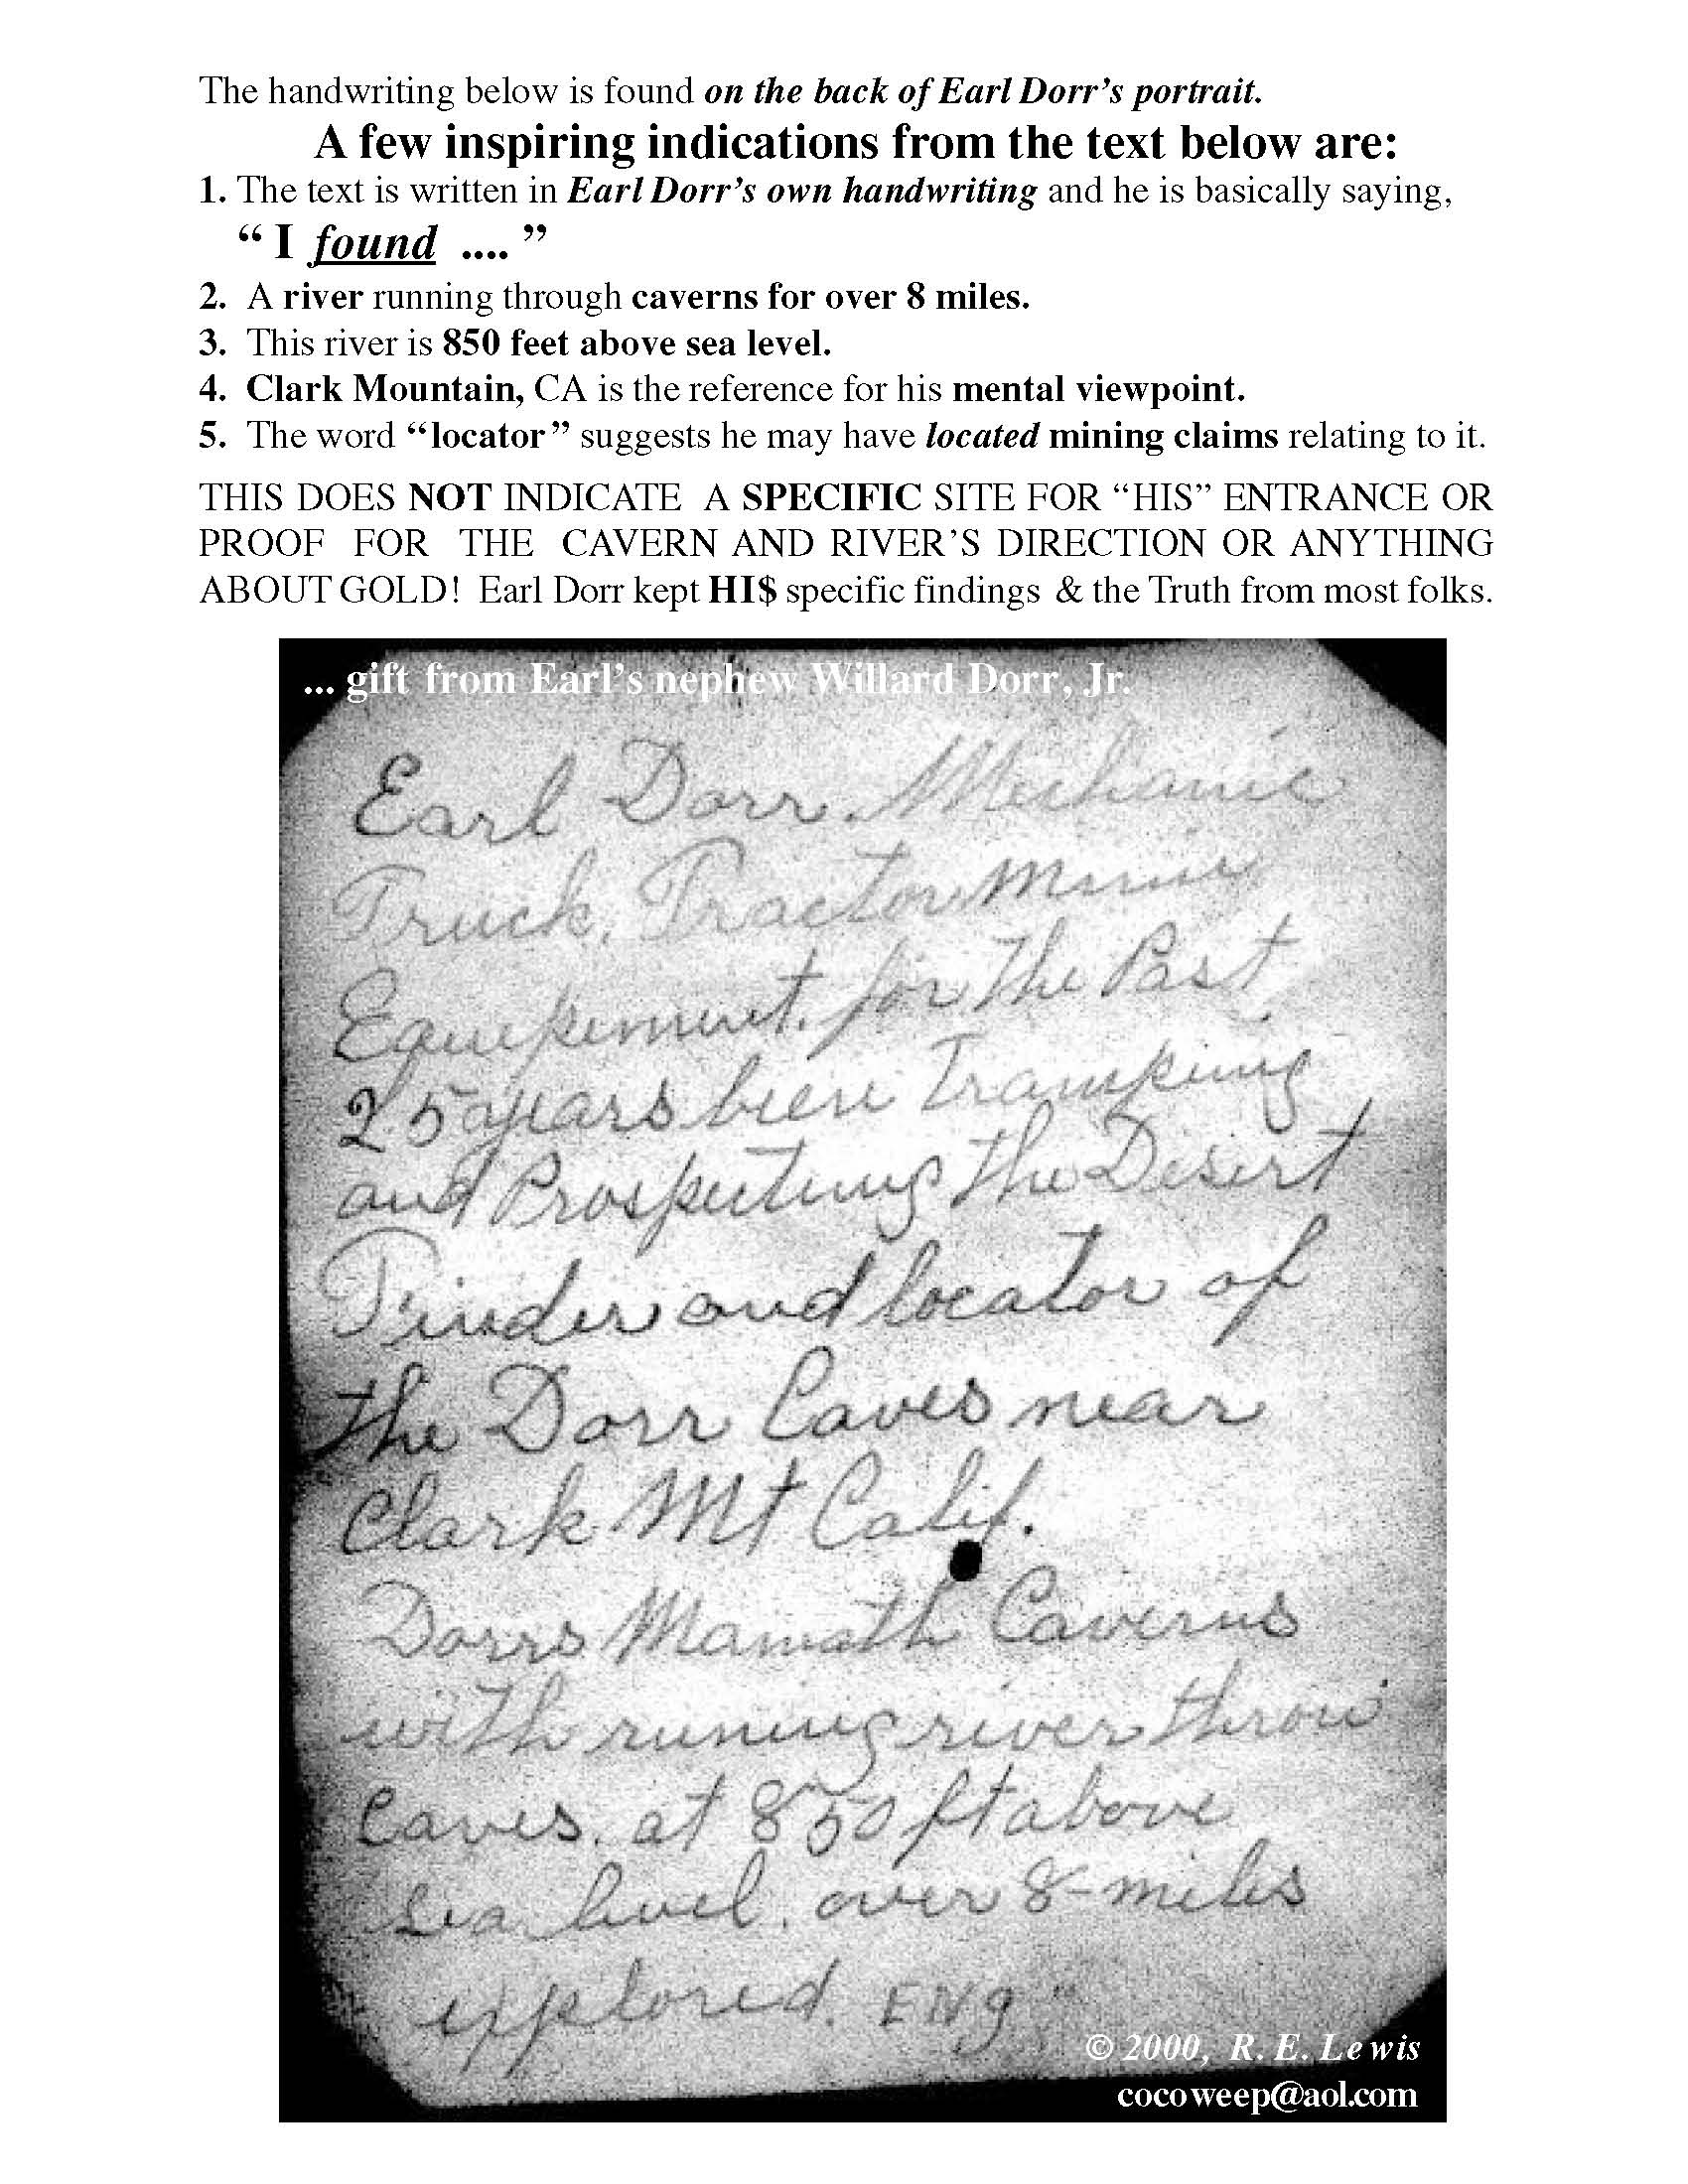 The handwriting below is found on the back of Earl Dorr’s portrait.
A few inspiring indications from the text below are:
1. The text is written in Earl Dorr’s own handwriting and he is basically saying,
“ I found .... ”
2. A river running through caverns for over 8 miles.
3. This river is 850 feet above sea level.
4. Clark Mountain, CA is the reference for his mental viewpoint.
5. The word “locator” suggests he may have located mining claims relating to it.
THIS DOES NOT INDICATE A SPECIFIC SITE FOR “HIS” ENTRANCE OR
PROOF FOR THE CAVERN AND RIVER’S DIRECTION OR ANYTHING
ABOUT GOLD! Earl Dorr kept HI$ specific findings & the Truth from most folks.
... gift from Earl’s nephew Willard Dorr, Jr.
Earl Dorr. Mechanic
Truck, Tractor
for the Past
25 years been Tramping
and Prospecting the Desert
Finder and locator of
the Dorr Caves near
Clark Mt Calif.
Dorrs Mamoth Caverns
with runing river throu
Caves. at 850 ft above
Sea level. over 8-miles
explored. ENg"
© 2000, R. E. Lewis
cocoweep@aol.com